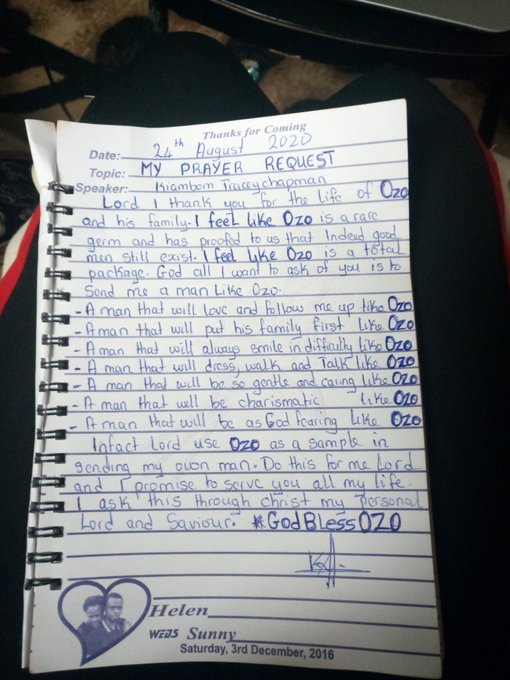 Thanks for Coming
Date: 24th August 2020
Topic: MY PRAYER REQUEST
Speaker: Kiambom Traceychapman
Lord I thank you for the life of Ozo
and his family. I feel like Ozo is a rare
germ and has proofed to us that Indeed good
men still exist. I feel like Ozo is a total
package. God all I want to ask of you is to
Send me a man Like Ozo.
- A man that will love and follow me up like Ozo
- A man that will put his family first like Ozo
- A man that will always smile in difficulty like Ozo
- A man that will dress, walk and Talk like Ozo
- A man that will be so gentle and caring like Ozo
- A man that will be charismatic like Ozo
- A man that will be as God fearing like Ozo
Infact Lord use Ozo as a sample in
sending my own man. Do this for me Lord
and I promise to serve you all my life.
I ask this through christ my personal
Lord and Saviour. #GodBlessOZO
Helen
WEDS Sunny
Saturday, 3rd December, 2016